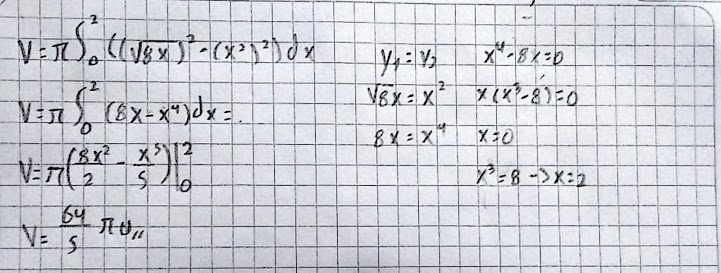 V=π∫₀²((√8x)²-(x²)²)dx
V=π∫₀²(8x-x⁴)dx=.
V=π(8x²/2 - x⁵/5)|₀²
V= 64/5 π u,,
y₁=y₂
√8x=x²
8x=x⁴
x⁴-8x=0
x(x³-8)=0
x=0
x³=8->x=2